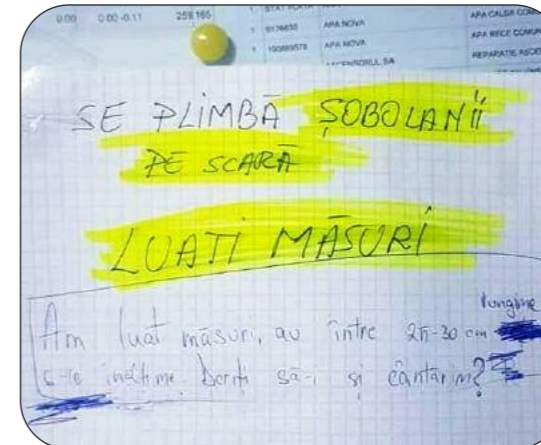 0.00 0.00 -0.11 259.165
1 STAT PLATA
1 5176635 APA NOVA APA CALDA
1 APA NOVA APA RECE COMUN
ASCENSORUL SA REPARATIE ASCE
SE PLIMBĂ ȘOBOLANII
PE SCARĂ
LUAȚI MĂSURI
Am luat măsuri, au între 25-30 cm lungime
înălțime. Doriți să-i și cântărim?